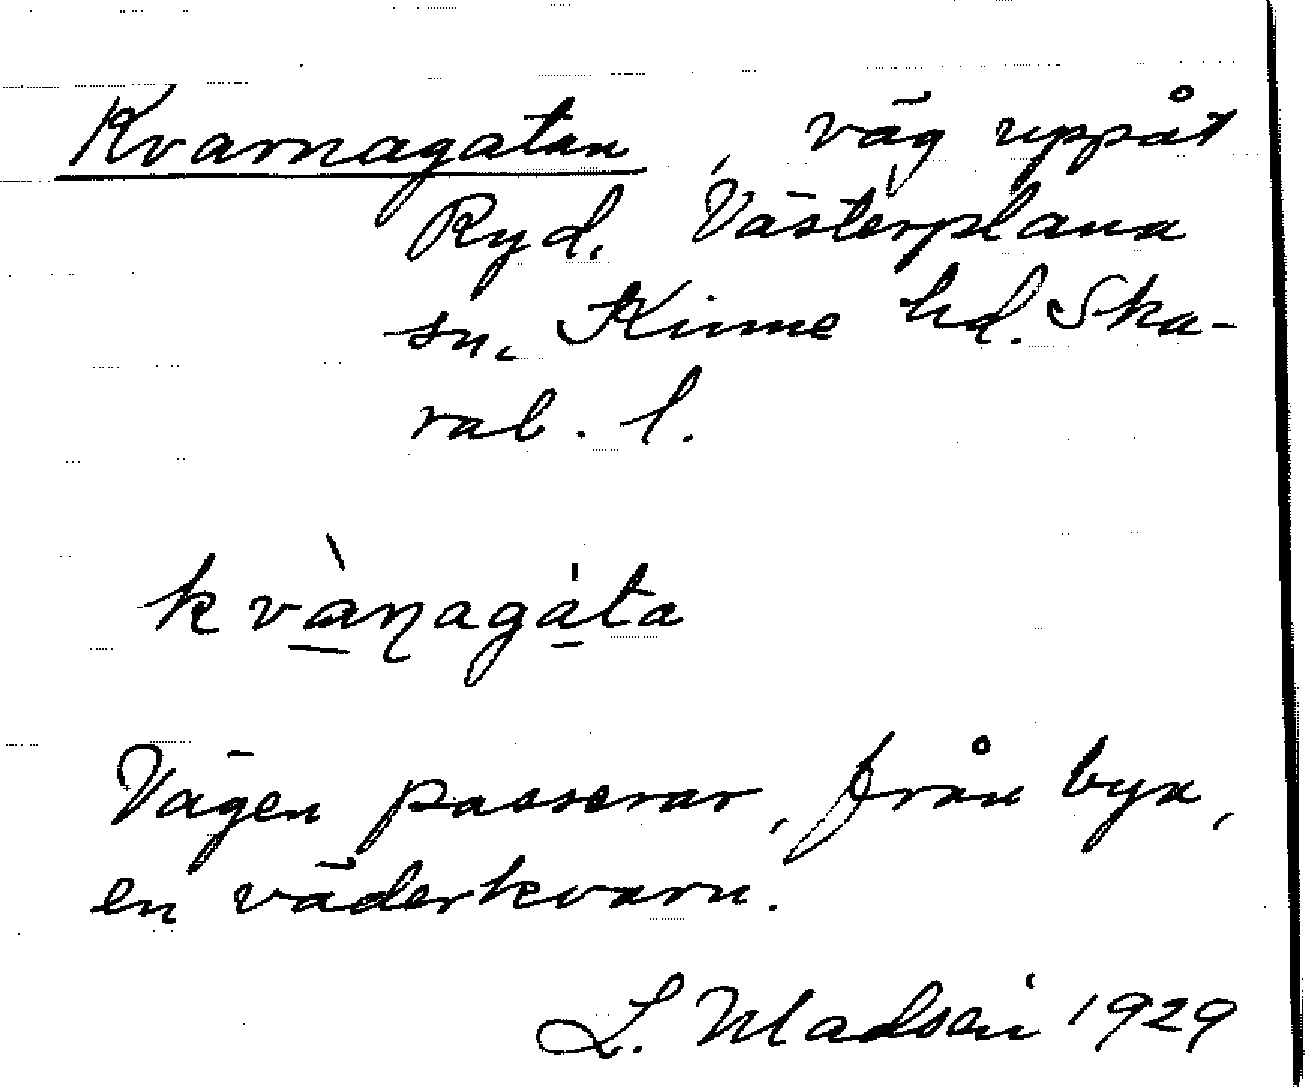 Kvarnagatan, väg uppåt
Ryd. Västerplana
sn. Kinne hd. Ska-
rab. l.
kvànagáta
Vägen passerar, från byn,
en väderkvarn.
L. Madsén 1929